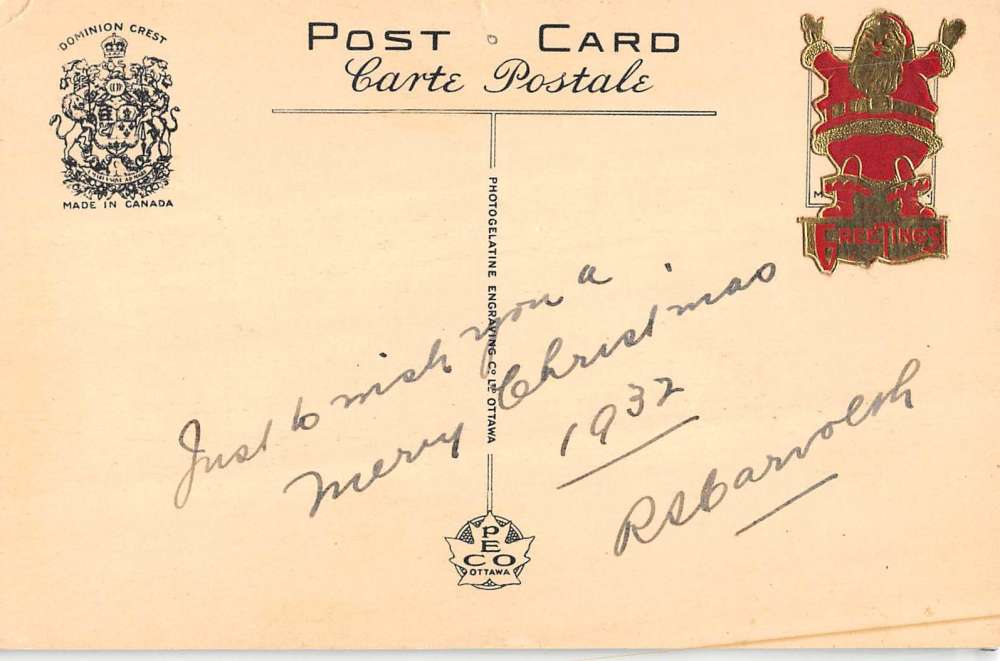 DOMINION CREST
MADE IN CANADA
POST CARD
Carte Postale
GREETINGS
PHOTOGELATINE ENGRAVING CO LTD OTTAWA
Just to wish you a
Merry Christmas
1932
PECO
OTTAWA